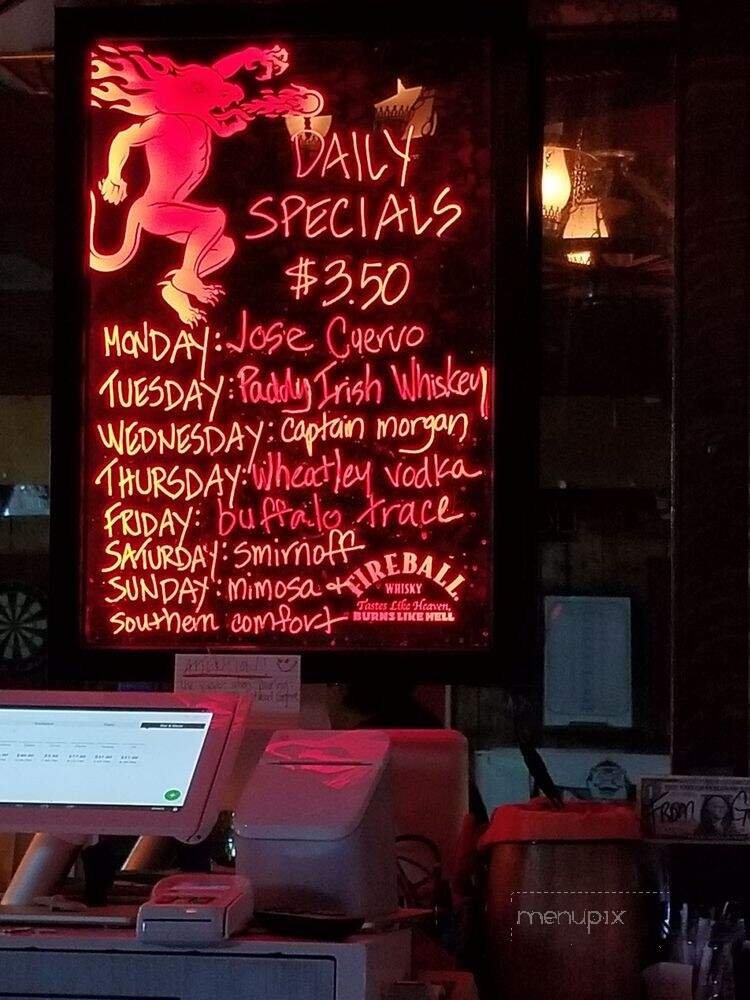 DAILY
SPECIALS
$3.50
MONDAY: Jose Cuervo
TUESDAY: Paddy Irish Whiskey
WEDNESDAY: captain morgan
THURSDAY: Wheatley vodka
FRIDAY: buffalo trace
SATURDAY: smirnoff
SUNDAY: mimosa +
southern comfort
FIREBALL
WHISKY
Tastes Like Heaven,
BURNS LIKE HELL
FROM
menupix